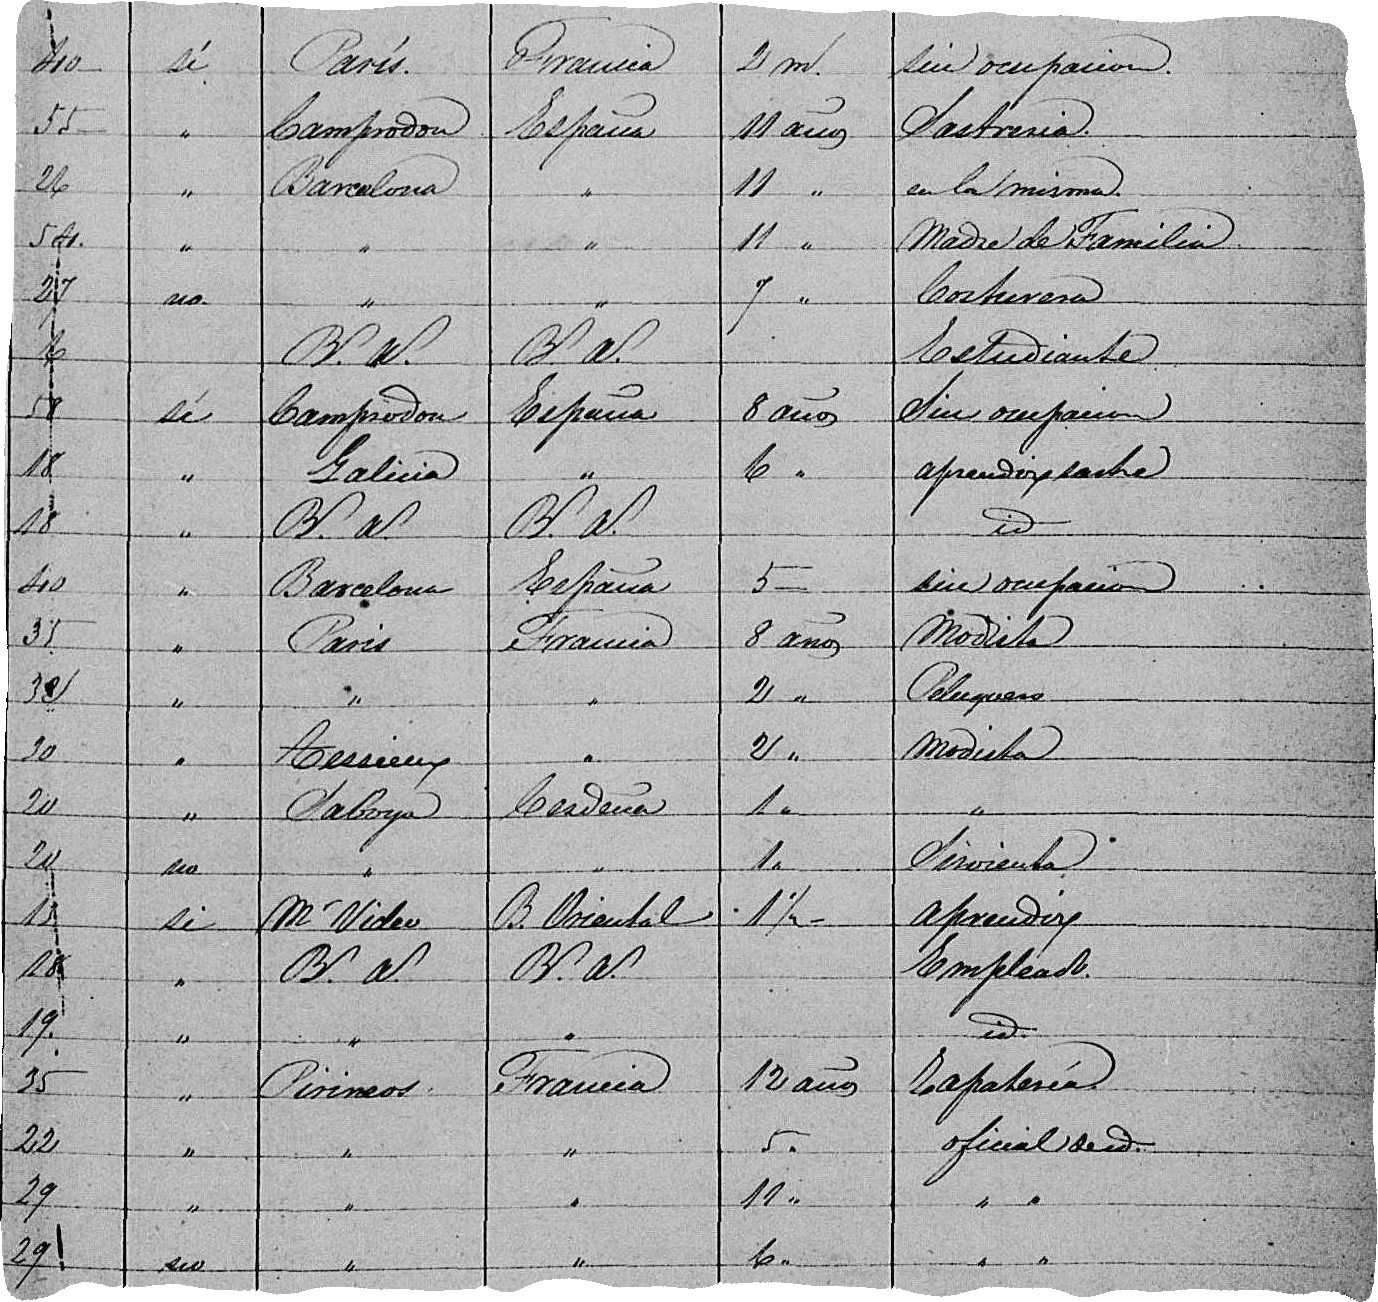 40 si París. Francia 2 m. sin ocupacion.
55 " Camprodon España 11 años Sastreria.
26 " Barcelona " 11 " en la misma.
54. " " " 11 " Madre de Familia.
27 no " " 7 " Costurera
6 B. A. B. A. Estudiante
58 si Camprodon España 8 años Sin ocupacion
18 " Galicia " 6 " aprendiz sastre
18 " B. A. B. A. id
40 " Barcelona España 5 — sin ocupacion
35 " Paris Francia 8 años Modista
" " " 2 " Peluquero
" Tessieux " 2 " Modista
20 " Saboya Cerdeña 1 " "
20 no " " 1 " Sirvienta
15 si Mr Video B. Oriental 1 ½ — aprendiz
18 " B. A. B. A. Empleado.
19. " " " id.
35 " Pirineos. Francia 12 años Zapatería
22 " " " 5 " oficial de id.
29 " " " 11 " " "
29 no " " 6 " " "